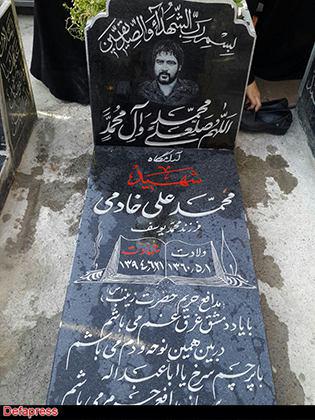 بسم رب الشهداء والصدیقین
اللهم صل علی محمد وآل محمد
شهید
محمد علی خادمی
فرزند محمد یوسف
ولادت شهادت
۱۳۶۰/۵/۱
مدافع حریم حضرت زینب (س)
با یاد دمشق غرق غم می باشم
در بین همین نوحه و دم می باشم
با پرچم سرخ یا ابا عبدالله
می باشم
Defapress